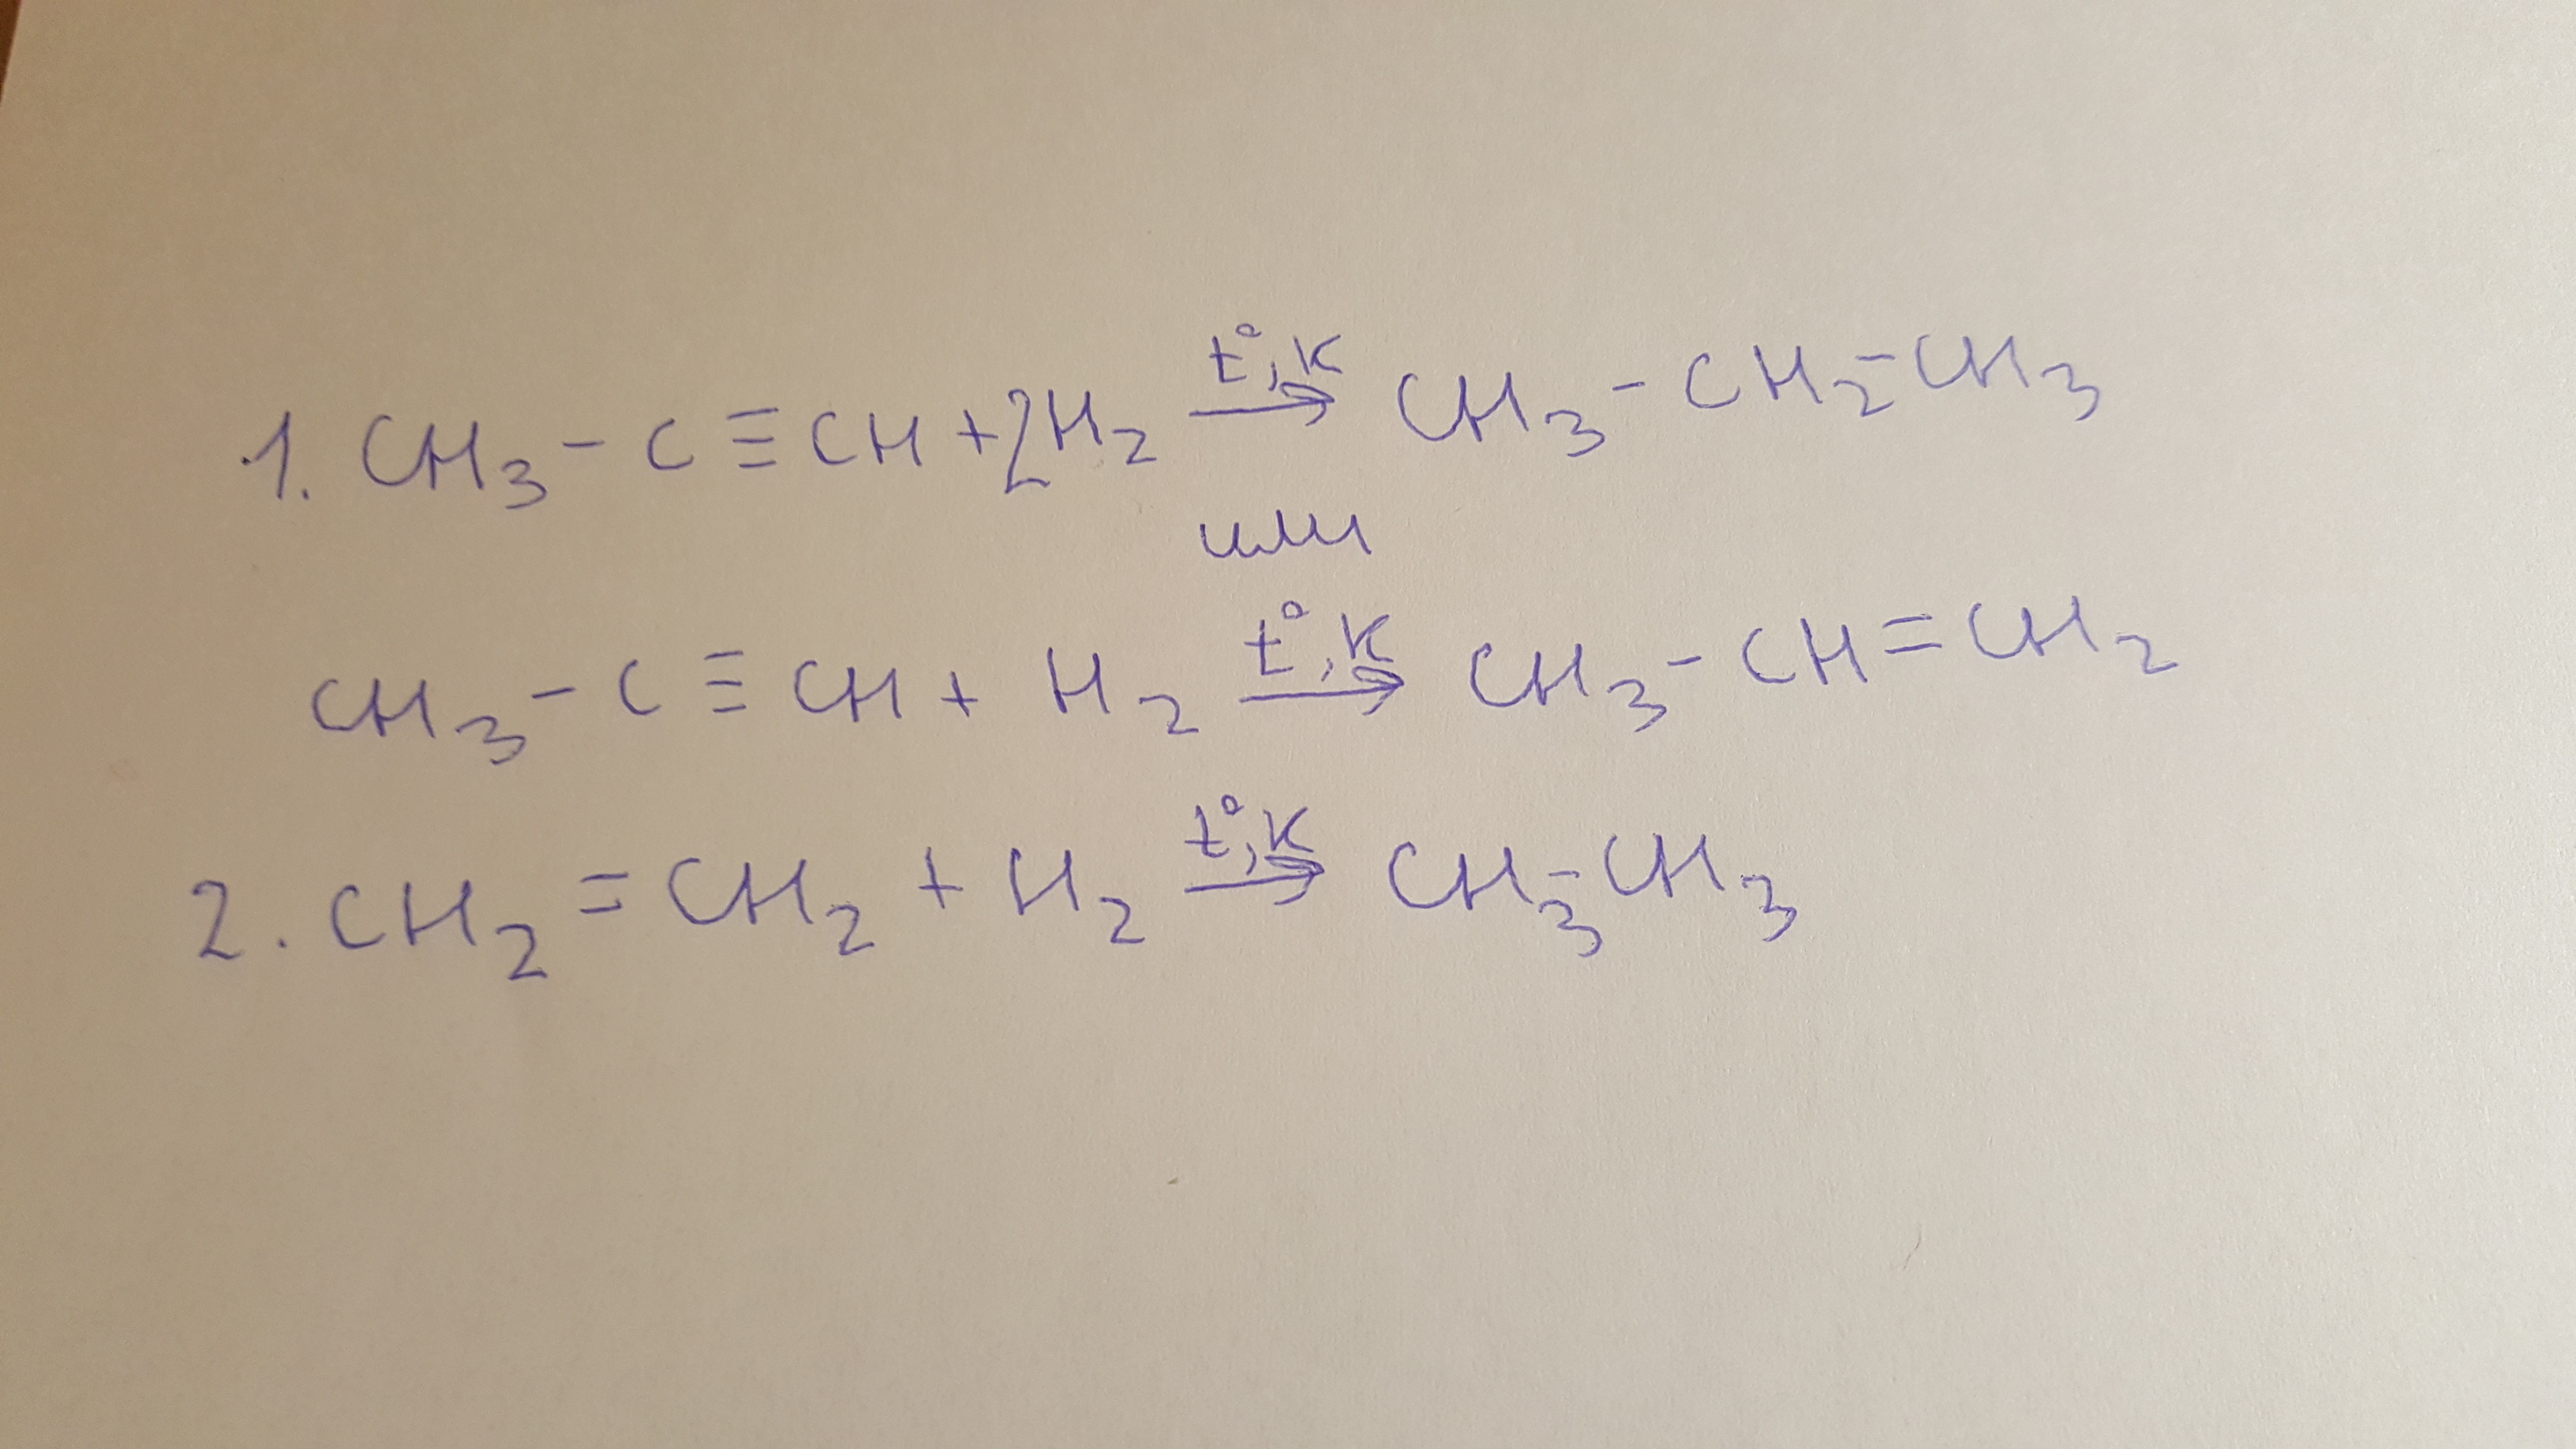 1. CH₃ - C ≡ CH + 2H₂ →(t°, к) CH₃ - CH₂ - CH₃
или
CH₃ - C ≡ CH + H₂ →(t°, к) CH₃ - CH = CH₂
2. CH₂ = CH₂ + H₂ →(t°, к) CH₃ - CH₃